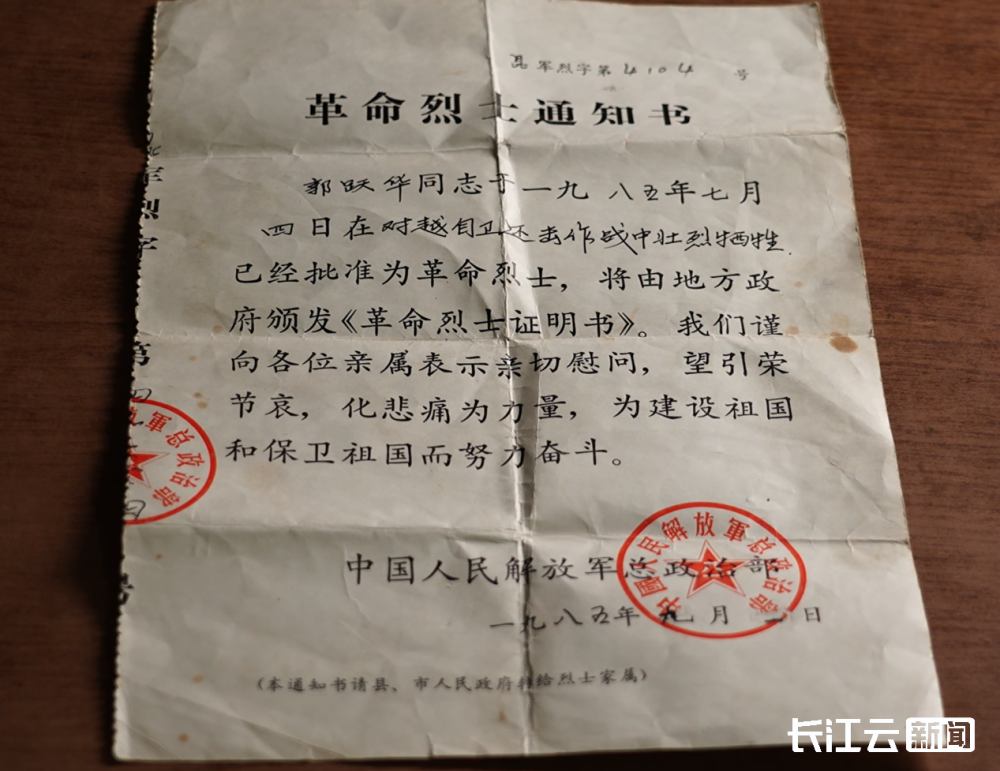 昆军烈字第4104号
革命烈士通知书
郭跃华同志于一九八五年七月
四日在对越自卫还击作战中壮烈牺牲
已经批准为革命烈士，将由地方政
府颁发《革命烈士证明书》。我们谨
向各位亲属表示亲切慰问，望引荣
节哀，化悲痛为力量，为建设祖国
和保卫祖国而努力奋斗。
中国人民解放军总政治部
一九八五年九月二日
中國人民解放軍总政治部
（本通知书请县、市人民政府转给烈士家属）
军烈字第
軍总政治部
号
长江云新闻